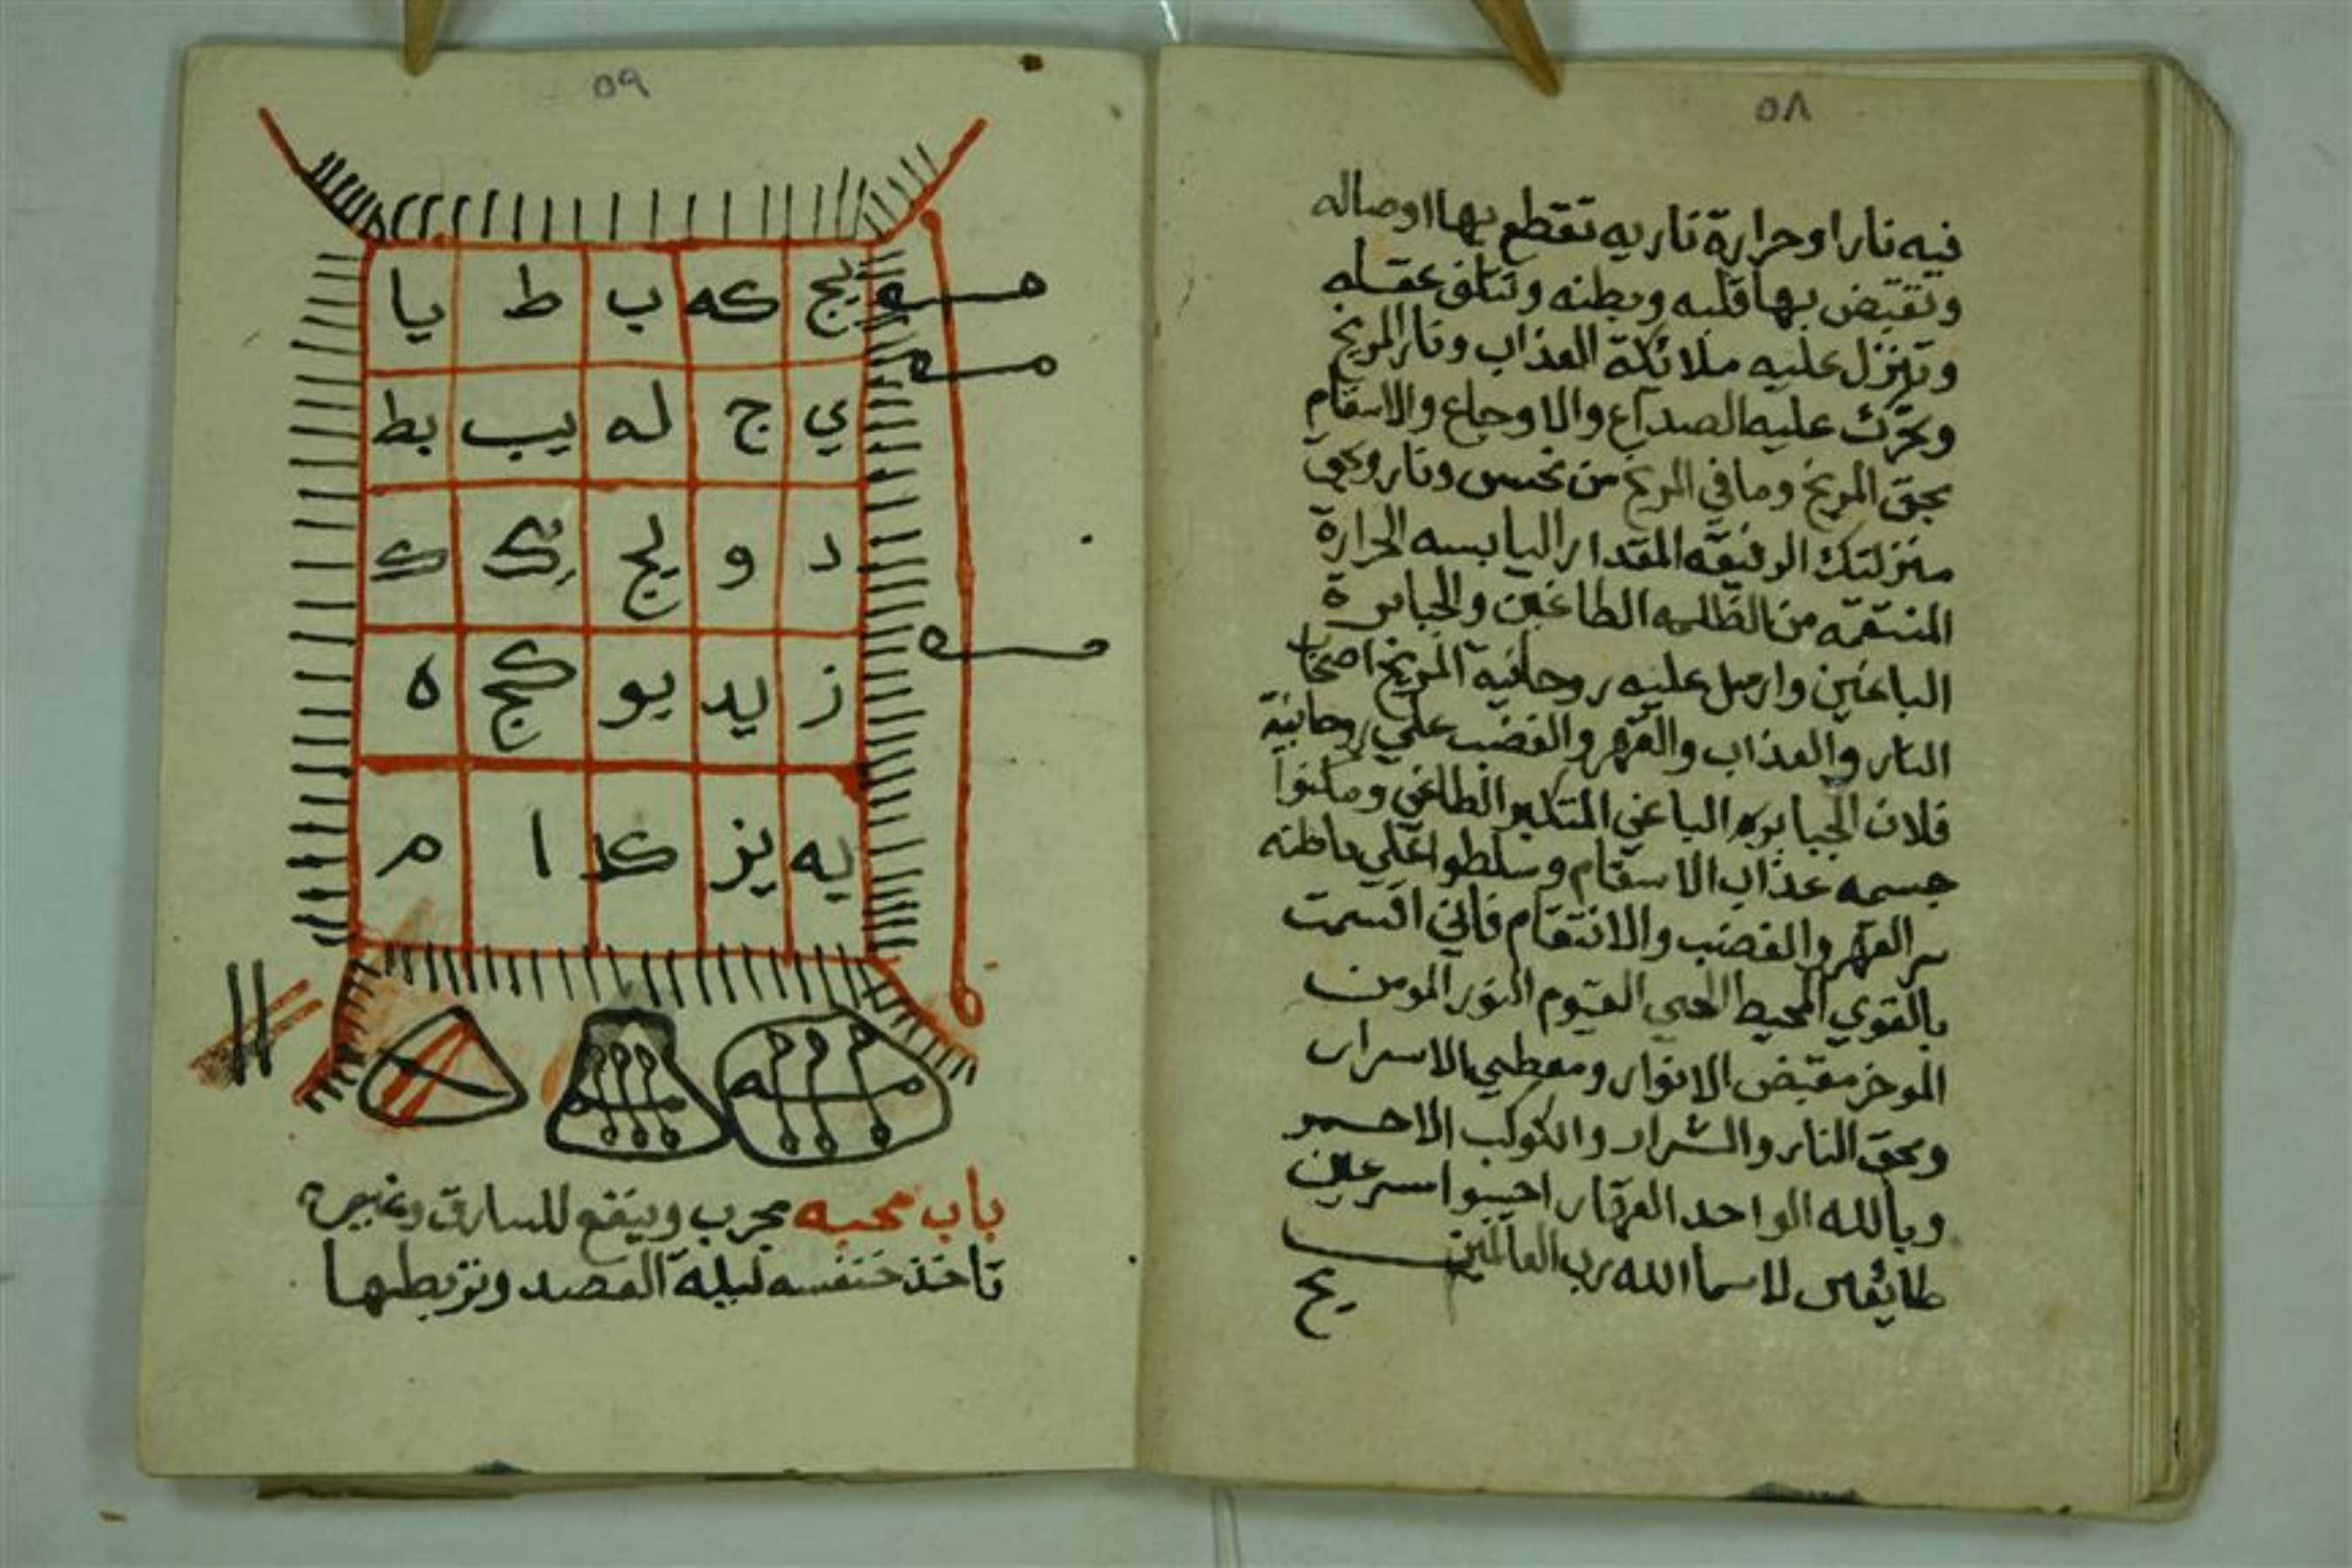 ٥٨
فيه نارا وحرارة ناريه تقطع بها اوصاله
وتقبض بها قلبه وبطنه وتتلف عقله
وتنزل عليه ملائكة العذاب ونار المريخ
وتحرك عليه الصداع والاوجاع والاسقام
بحق المريخ وما في المريخ من نحس ونار وبحق
منزلتك الرفيعه المقدار اليابسه الحرارة
المنتقمه من الظلمه الطاغين والجبابرة
الباغين وارسل عليه روحانية المريخ اصحاب
النار والعذاب والقهر والغضب علي روحانية
فلان الجبابره الباغي المتكبر الطاغي
جسمه عذاب الاسقام وسلطوا علي باطنه
سر القهر والغضب والانتقام فاني اقسمت
بالقوي المحيط الحي القيوم النور المومن
الموخر مقبض الانوار ومعطي الاسرار
وبحق النار والشرار والكوكب الاحمر
وبالله الواحد القهار اجيبوا اسرعين
طايعين لاسما الله رب العالمين
٥٩
يج كه ب ط يا
ي ج له يب بط
د و يج ك
ز يد يو كج ه
يه يز كد ا م
باب محبه مجرب وينفع للسارق وغيره
تاخذ خنفسه ليلة القصد وتربطها